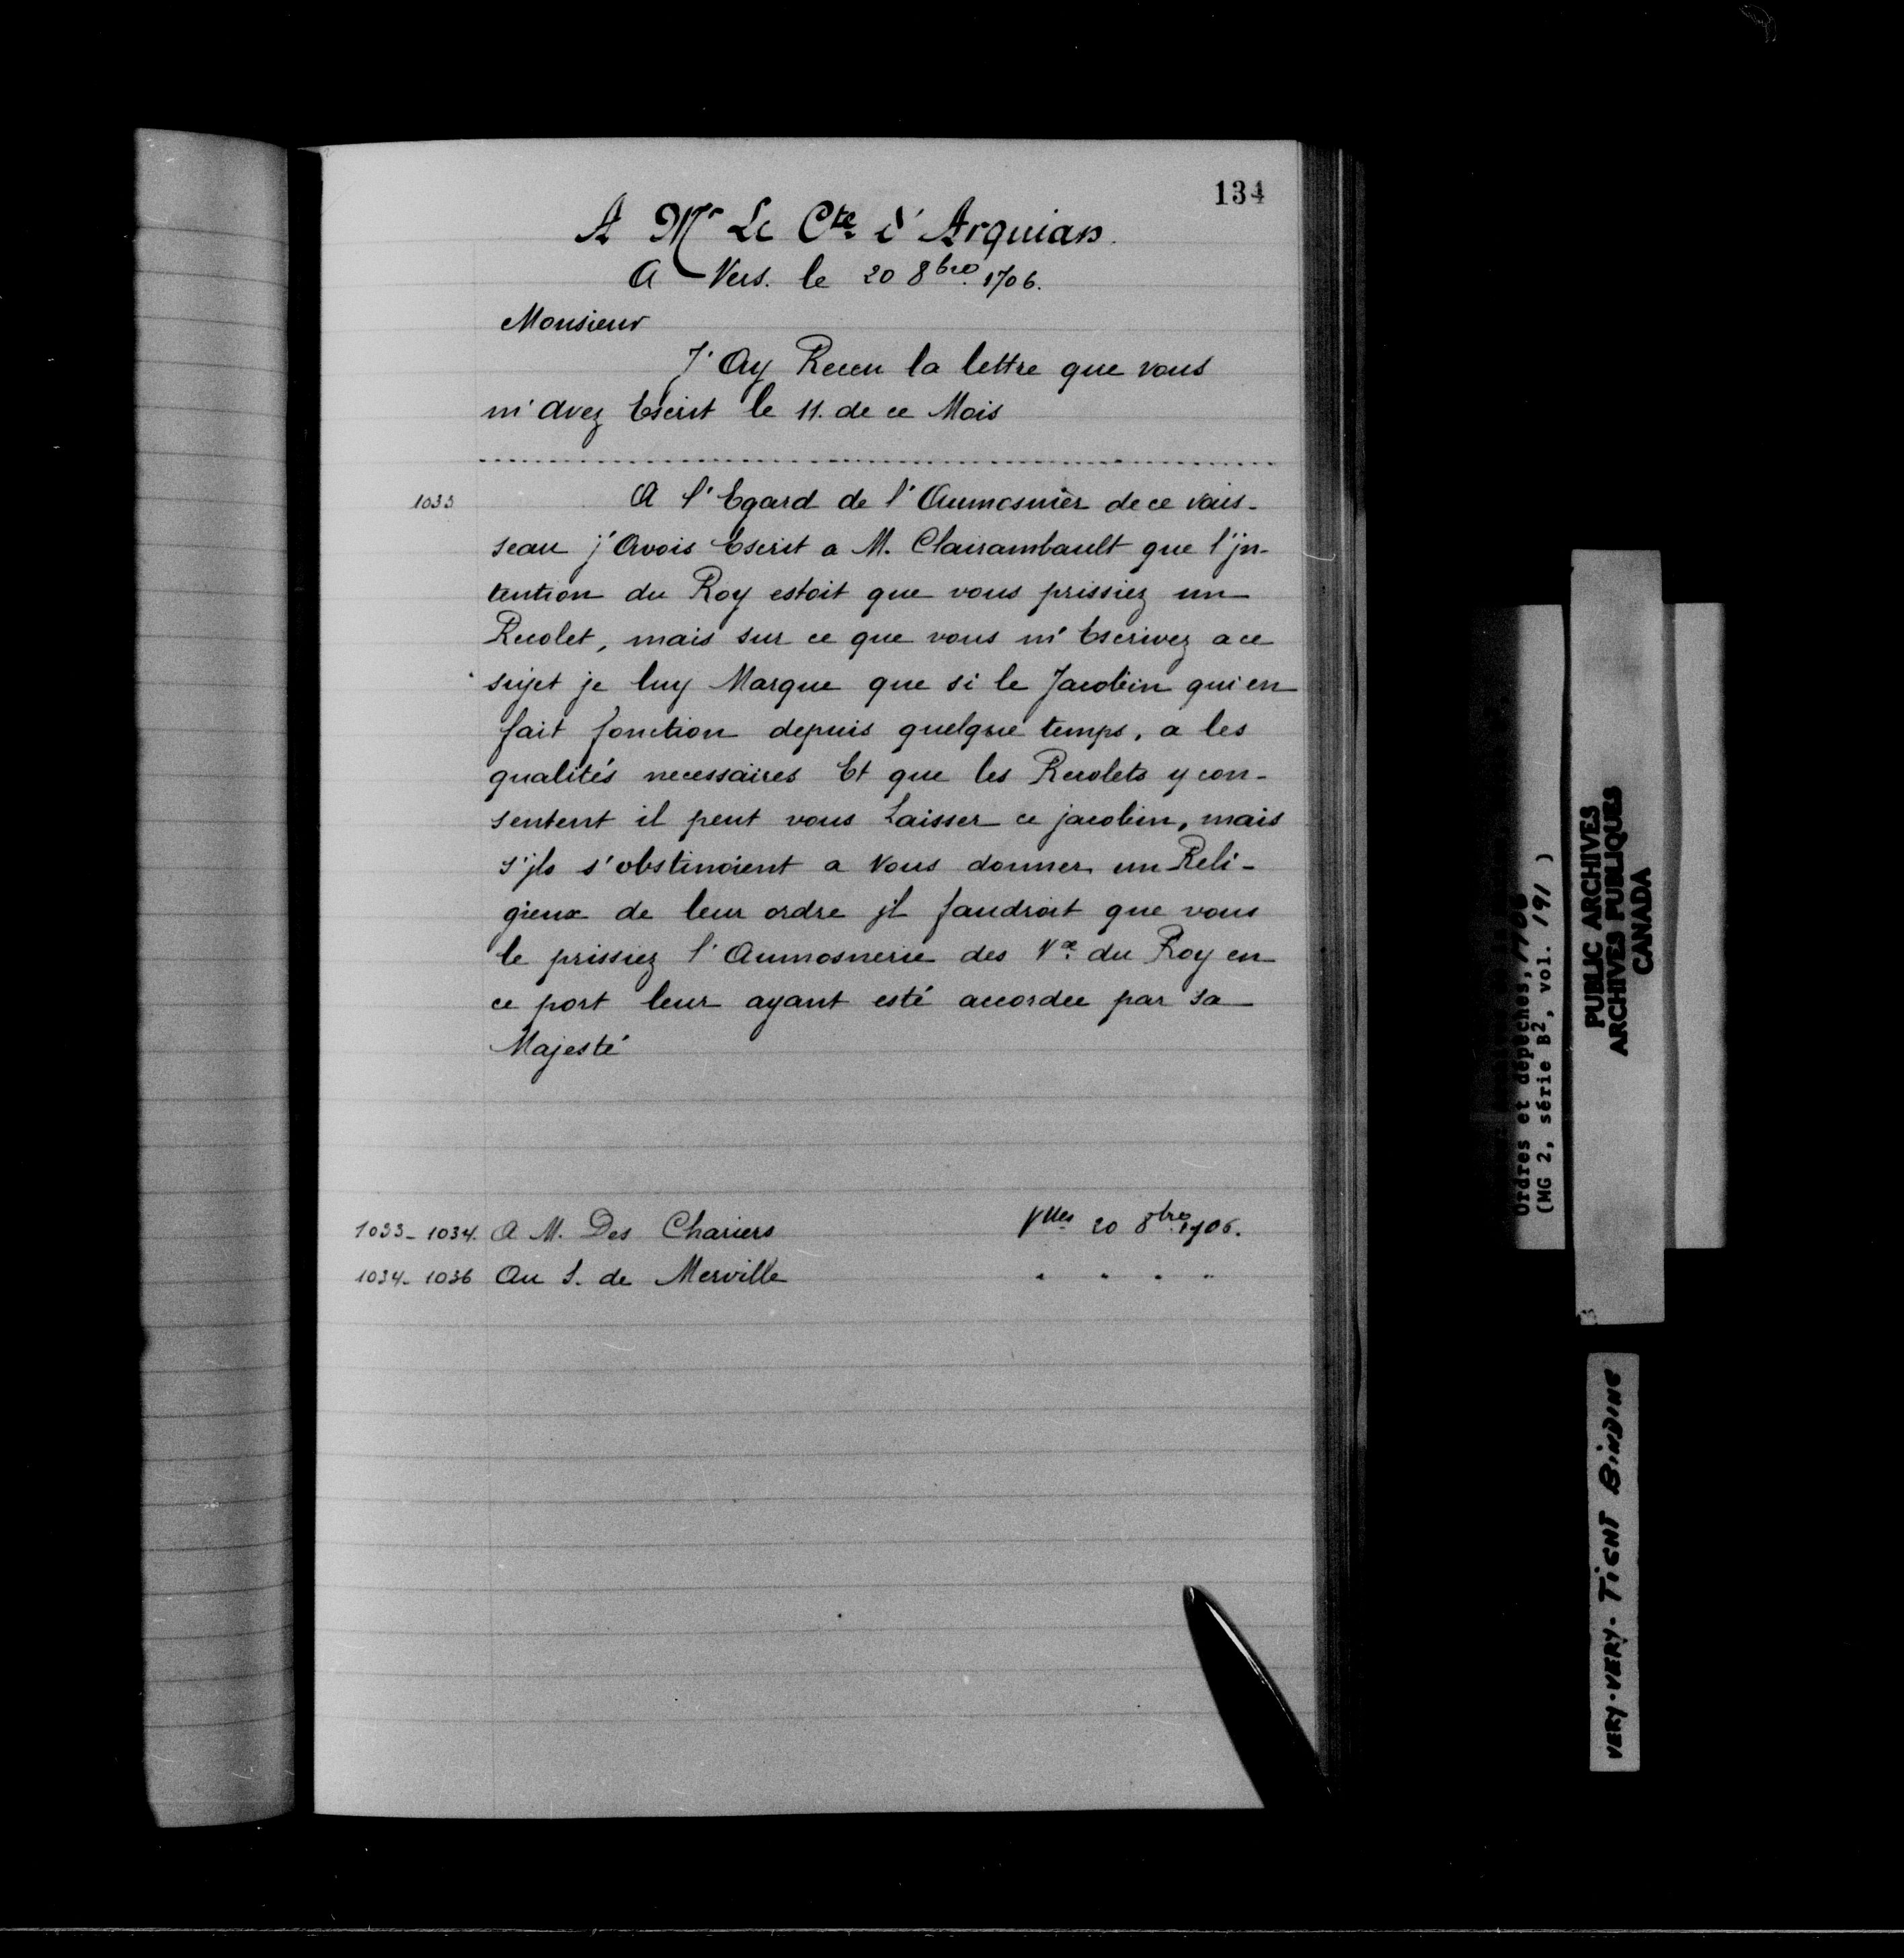 134
A Mr Le Cte d'Arquian.
A Vers. le 20 8bre. 1706.
Monsieur
J'Ay Receu la lettre que vous
m'avez Escrit le 11. de ce Mois
1033 A l'Egard de l'Aumosnier de ce vais-
seau j'Avois Escrit a M. Clairambault que l'jn-
tention du Roy estoit que vous prissiez un
Recolet, mais sur ce que vous m'Escrivez a ce
sujet je luy Marque que si le Jacobin qui en
fait fonction depuis quelque temps, a les
qualités necessaires Et que les Recolets y con-
sentent il peut vous Laisser ce jacobin, mais
s'jls s'obstinoient a Vous donner un Reli-
gieux de leur ordre jl faudroit que vous
le prissiez l'Aumosnerie des Vx. du Roy en
ce port leur ayant esté accordée par sa
Majesté
1033-1034. A M. Des Chariers Vlles 20 8bre. 1706.
1034-1036 Au S. de Merville " " " "
Ordres et dépêches, 1706
(MG 2, série B2, vol. 191 )
PUBLIC ARCHIVES
ARCHIVES PUBLIQUES
CANADA
VERY-VERY- TIGHT BINDING